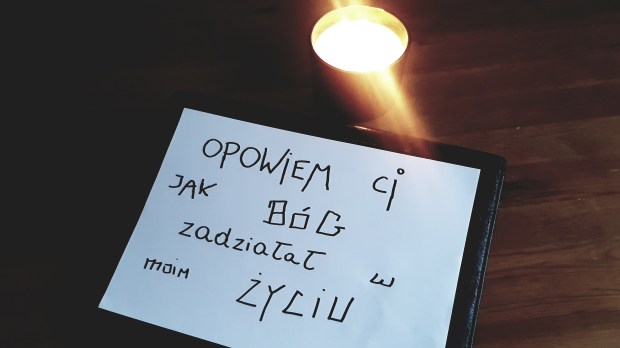 OPOWIEM Ci
JAK
BÓG
zadziałał w
moim
ŻYCIU